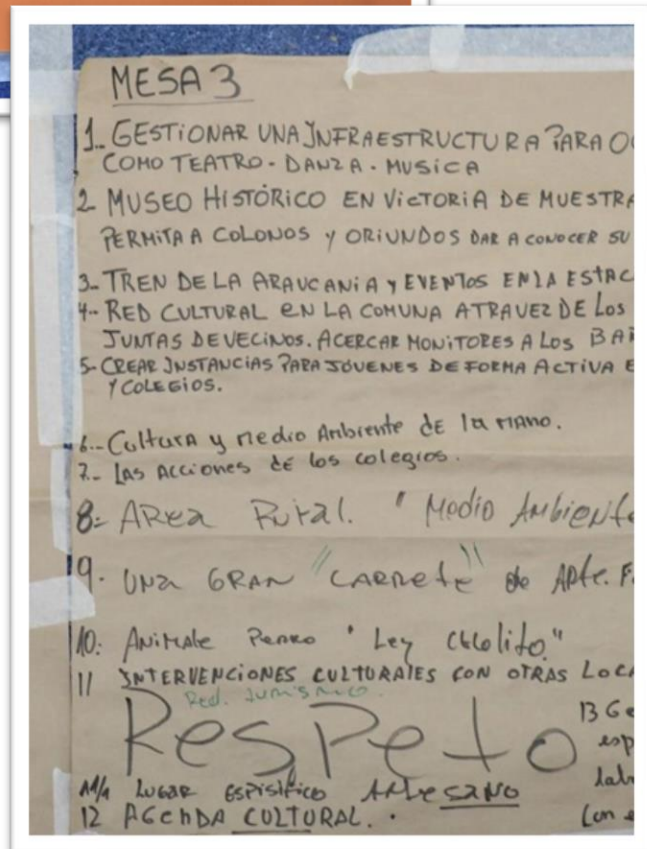 MESA 3
1.. GESTIONAR UNA INFRAESTRUCTURA PARA
COMO TEATRO - DANZA - MUSICA
2- MUSEO HISTÓRICO EN VICTORIA DE MUESTRA
PERMITA A COLONOS Y ORIUNDOS DAR A CONOCER SU
3- TREN DE LA ARAUCANIA Y EVENTOS EN LA ESTAC
4-- RED CULTURAL EN LA COMUNA ATRAVEZ DE LOS
JUNTAS DE VECINOS. ACERCAR MONITORES A LOS
5- CREAR INSTANCIAS PARA JÓVENES DE FORMA ACTIVA E
Y COLEGIOS.
6.- Cultura y medio Ambiente de la mano.
7.- LAS ACCIONES de los colegios.
8:- AREA RURAL. " Medio Ambiente
9. UNA GRAN "CARRETE" de ARte.
10: ANIMALE PERRO " Ley CHOLITO"
11 INTERVENCIONES CULTURALES CON OTRAS LOCA
Red.
Respeto
13 Ge
esp
lab
Con
LUGAR ESPISIFICO ARTESANO
12 AGENDA CULTURAL.